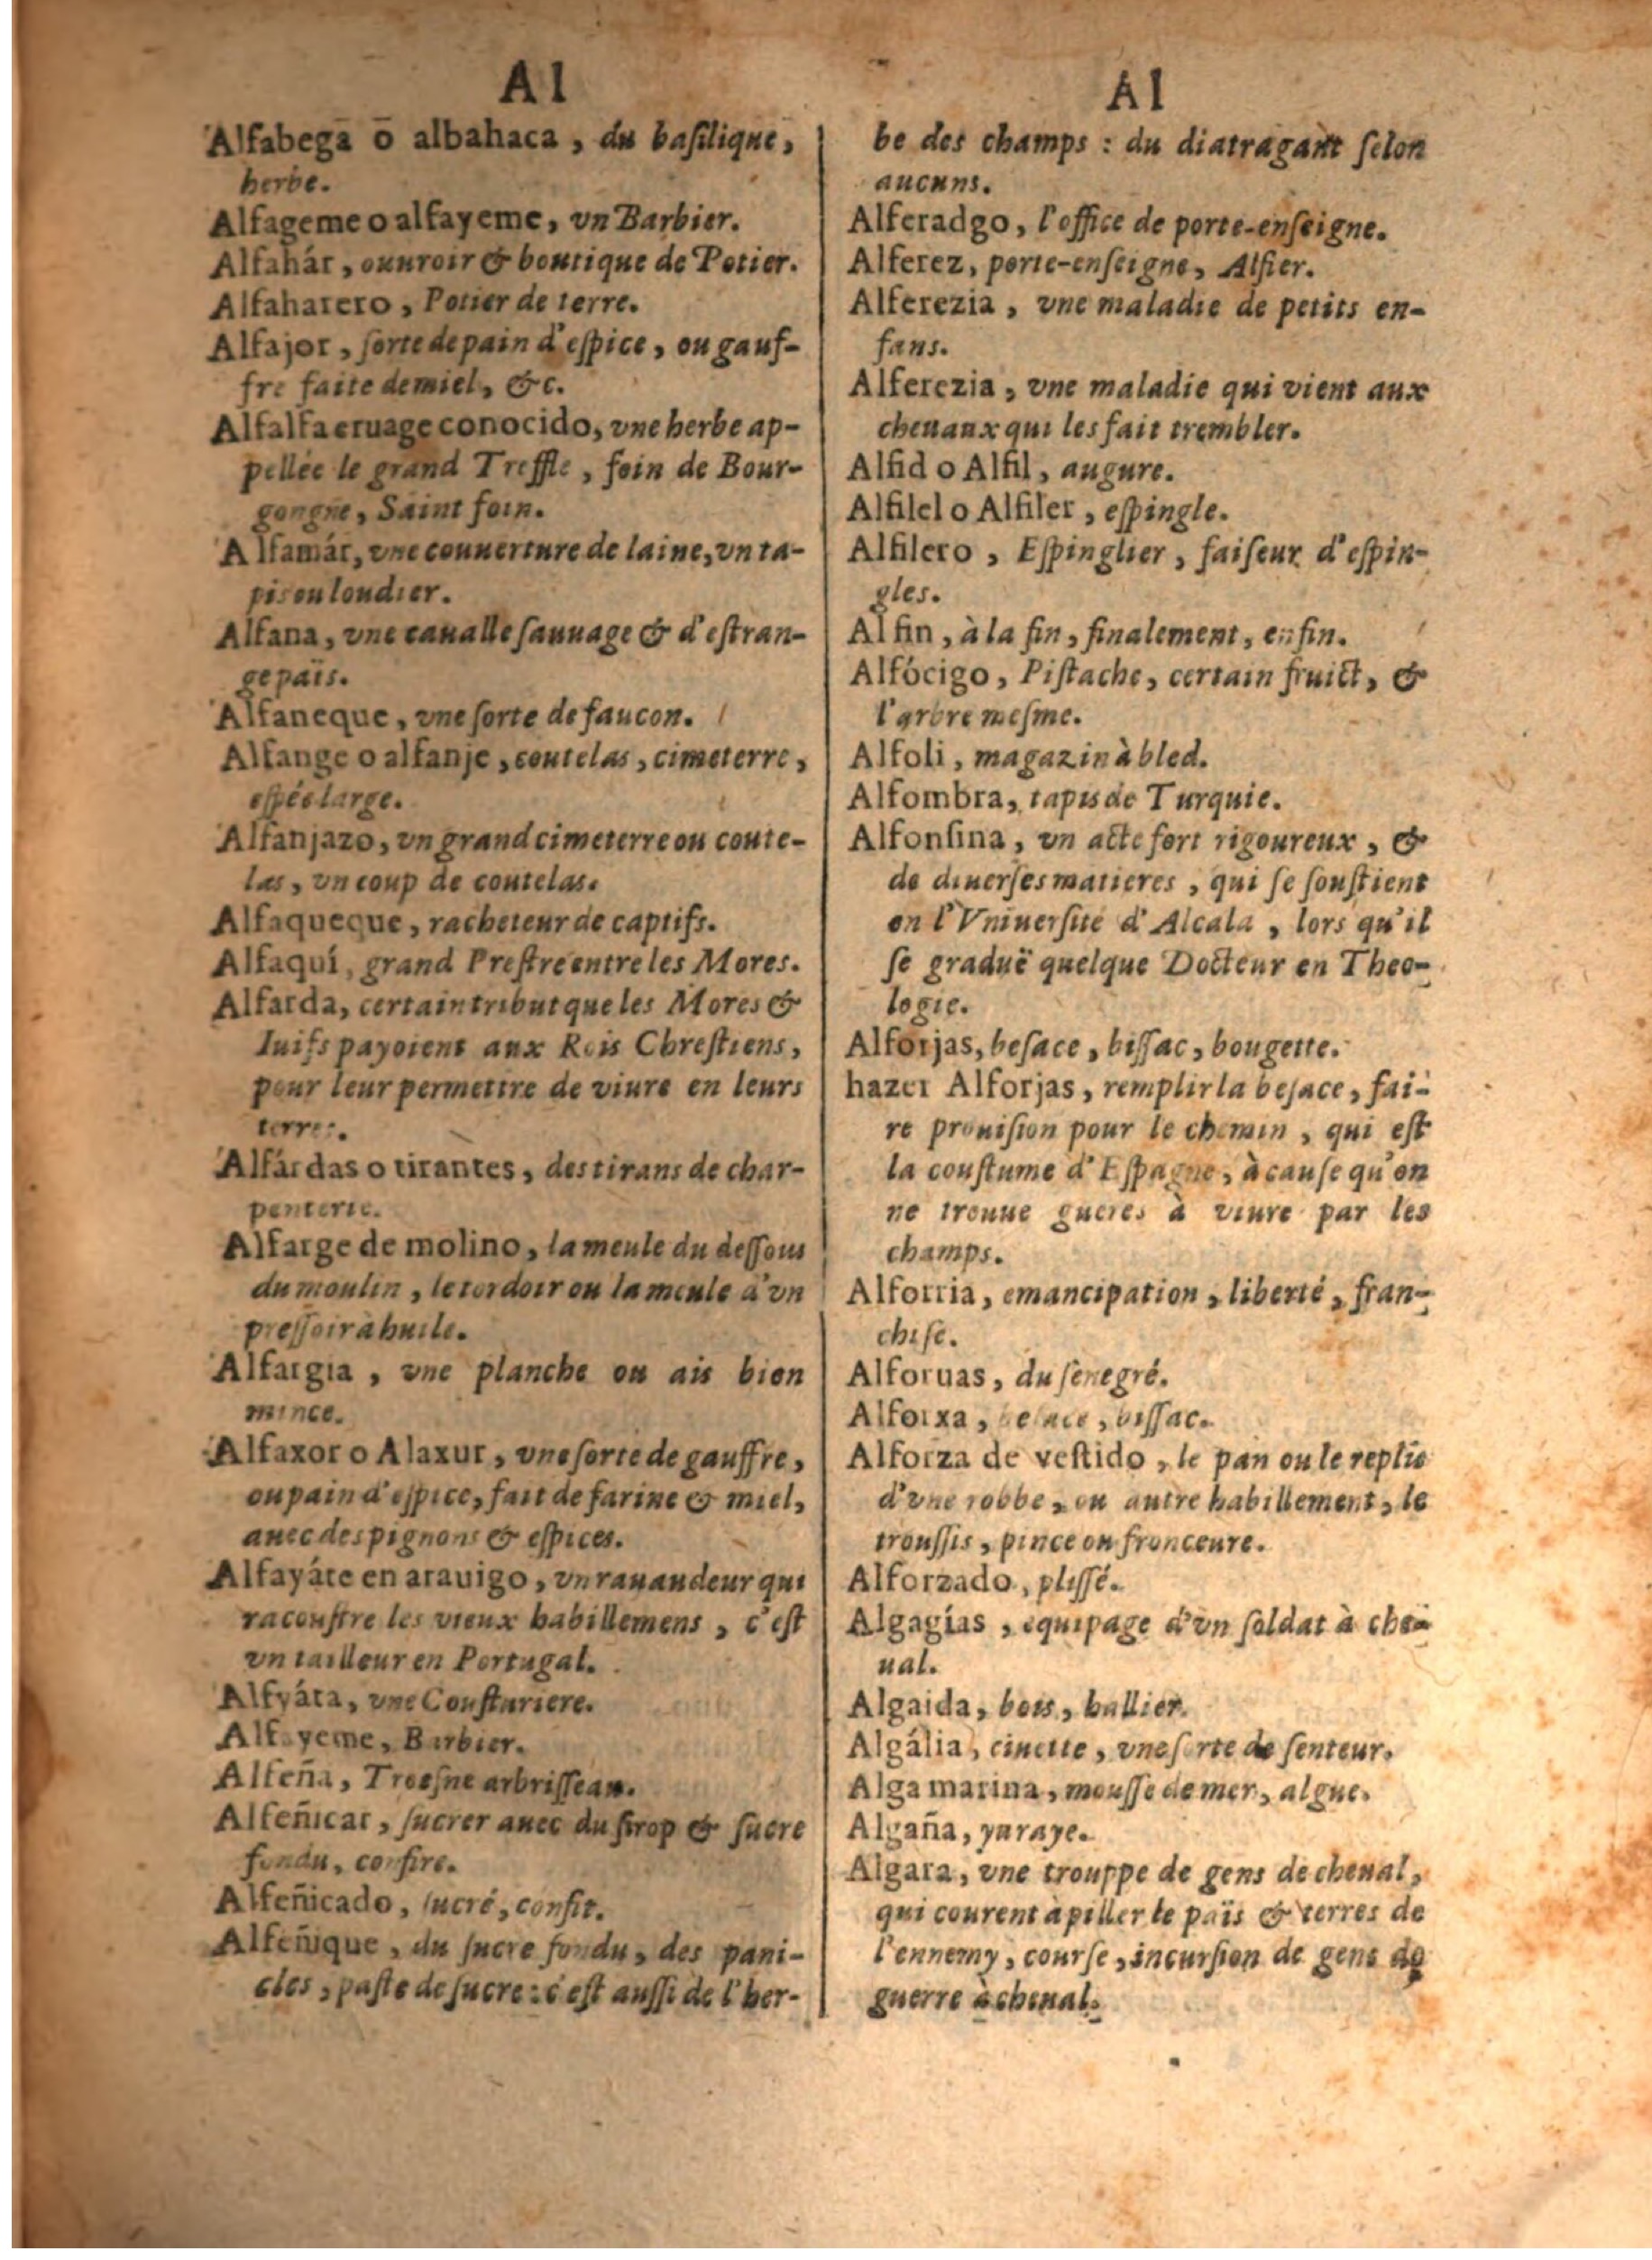 Al
Alfabega o albahaca, du basilique,
herbe.
Alfageme o alfayeme, vn Barbier.
Alfahár, ouuroir & boutique de Potier.
Alfaharero, Potier de terre.
Alfajor, sorte de pain d'espice, ou gauf-
fre faite de miel, &c.
Alfalfa eruage conocido, vne herbe ap-
pellée le grand Treffle, foin de Bour-
gongne, Saint foin.
Alfamár, vne couuerture de laine, vn ta-
pis ou loudier.
Alfana, vne caualle sauuage & d'estran-
ge païs.
Alfaneque, vne sorte de faucon.
Alfange o alfanje, coutelas, cimeterre,
espée large.
Alfanjazo, vn grand cimeterre ou coute-
las, vn coup de coutelas.
Alfaqueque, racheteur de captifs.
Alfaquí, grand Prestre entre les Mores.
Alfarda, certain tribut que les Mores &
Iuifs payoient aux Rois Chrestiens,
pour leur permettre de viure en leurs
terres.
Alfárdas o tirantes, des tirans de char-
penterie.
Alfarge de molino, la meule du dessous
du moulin, le tordoir ou la meule d'vn
pressoir à huile.
Alfargia, vne planche ou ais bien
mince.
Alfaxor o Alaxur, vne sorte de gauffre,
ou pain d'espice, fait de farine & miel,
auec des pignons & espices.
Alfayáte en arauigo, vn rauaudeur qui
racoustre les vieux habillemens, c'est
vn tailleur en Portugal.
Alfyáta, vne Cousturiere.
Alfayeme, Barbier.
Alfeña, Troesne arbrisseau.
Alfeñicar, sucrer auec du sirop & sucre
fondu, confire.
Alfeñicado, sucré, confit.
Alfeñique, du sucre fondu, des pani-
cles, paste de sucre : c'est aussi de l'her-
Al
be des champs : du diatragant selon
aucuns.
Alferadgo, l'office de porte-enseigne.
Alferez, porte-enseigne, Alfier.
Alferezia, vne maladie de petits en-
fans.
Alferezia, vne maladie qui vient aux
cheuaux qui les fait trembler.
Alfid o Alfil, augure.
Alfilel o Alfiler, espingle.
Alfilero, Espinglier, faiseur d'espin-
gles.
Al fin, à la fin, finalement, enfin.
Alfócigo, Pistache, certain fruict, &
l'arbre mesme.
Alfoli, magazin à bled.
Alfombra, tapis de Turquie.
Alfonsina, vn acte fort rigoureux, &
de diuerses matieres, qui se soustient
en l'Vniuersité d'Alcala, lors qu'il
se graduë quelque Docteur en Theo-
logie.
Alforjas, besace, bissac, bougette.
hazer Alforjas, remplir la besace, fai-
re prouision pour le chemin, qui est
la coustume d'Espagne, à cause qu'on
ne trouue gueres à viure par les
champs.
Alforria, emancipation, liberté, fran-
chise.
Alforuas, du senegré.
Alforxa, besace, bissac.
Alforza de vestido, le pan ou le replis
d'vne robbe, ou autre habillement, le
troussis, pince ou fronceure.
Alforzado, plissé.
Algagías, equipage d'vn soldat à che-
ual.
Algaida, bois, hallier.
Algália, ciuette, vne sorte de senteur.
Alga marina, mousse de mer, algue.
Algaña, yuraye.
Algara, vne trouppe de gens de cheual,
qui courent à piller le païs & terres de
l'ennemy, course, incursion de gens de
guerre à cheual.